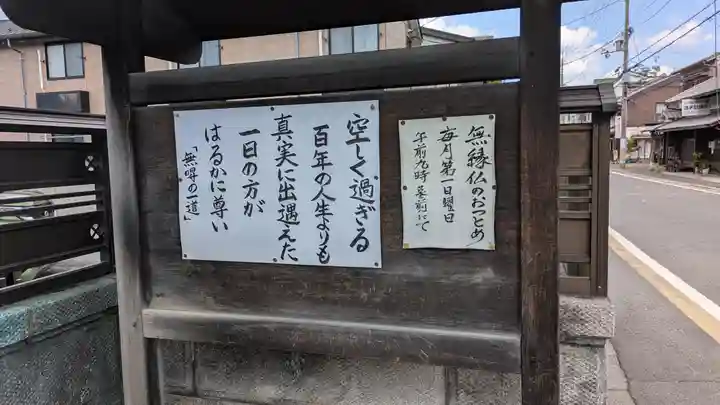 空しく過ぎる
百年の人生よりも
真実に出遇えた
一日の方が
はるかに尊い
「無碍の一道」
無縁仏のおつとめ
毎月第一日曜日
午前九時 墓前にて